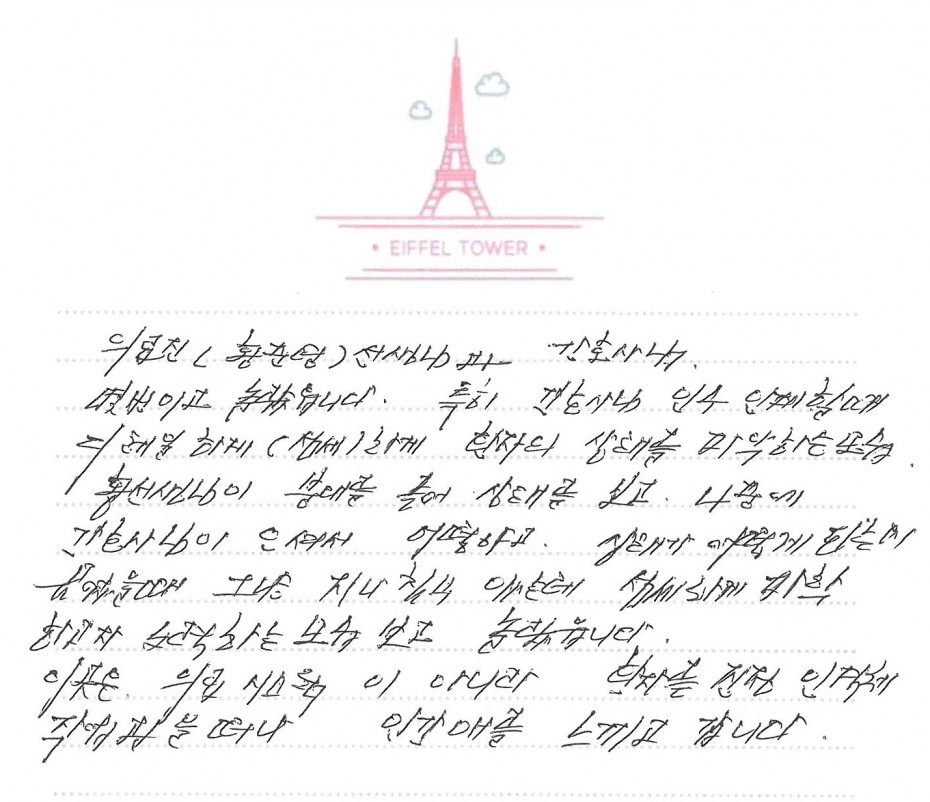 EIFFEL TOWER
의료진 (황준영) 선생님과 간호사님.
몇번이고 놀랐읍니다. 특히 간호사님 인수 인계 할때
디테일 하게 (섬세) 하게 환자의 상태를 파악하는 모습.
황선생님이 붕대를 풀어 상태를 보고. 나중에
간호사님이 오셔서 어떻하고. 상태가 어떻게
그냥 지나칠 수 있는데 섬세하게 파악
하고자 노력하는 모습 보고 놀랐읍니다.
이것은 의료 시스템 이 아니라 환자를 진정
직업관을 떠나 인간애를 느끼고 갑니다.